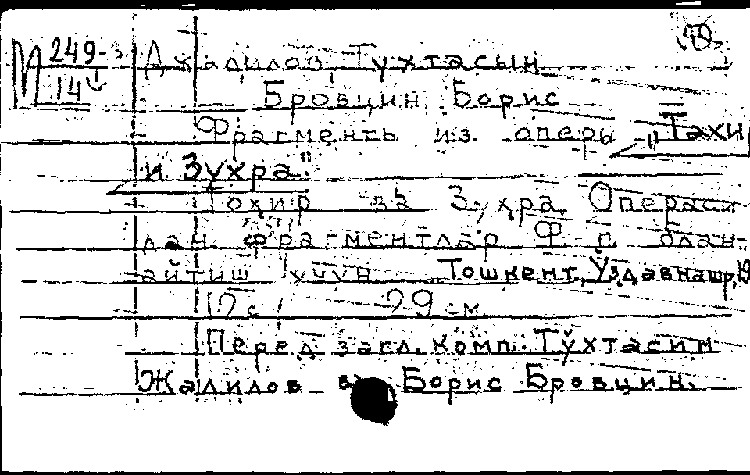 М 249-3 Джалилов, Тухтасын
14
Бровцин, Борис
Фрагменты из оперы "Тахир
и Зухра."
Тохир ва Зухра. Операси-
дан фрагментлар Ф-п. блан
айтиш учун Тошкент, Ўздавнашр,
12 с 29 см
Перед загл. комп.: Тўхтасин
Жалилов ва Борис Бровцин.